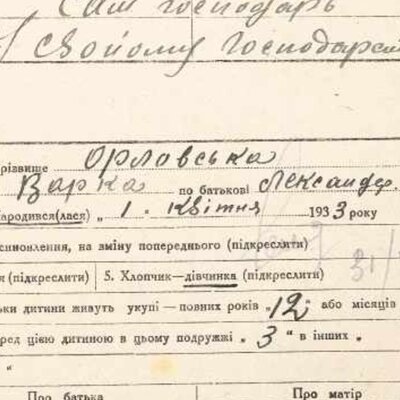 Сам господарь
в свойому господарст
різвище Орловська
Варка по батькові Лександер.
Народився(лася) „ 1 . квітня 1933 року
синовлення, на зміну попереднього (підкреслити)
я (підкреслити) 5. Хлопчик—дівчинка (підкреслити)
ьки дитини живуть укупі—повних років „12" або місяців
ред цією дитиною в цьому подружжі „ 3 " в інших „
"
Про батька Про матір